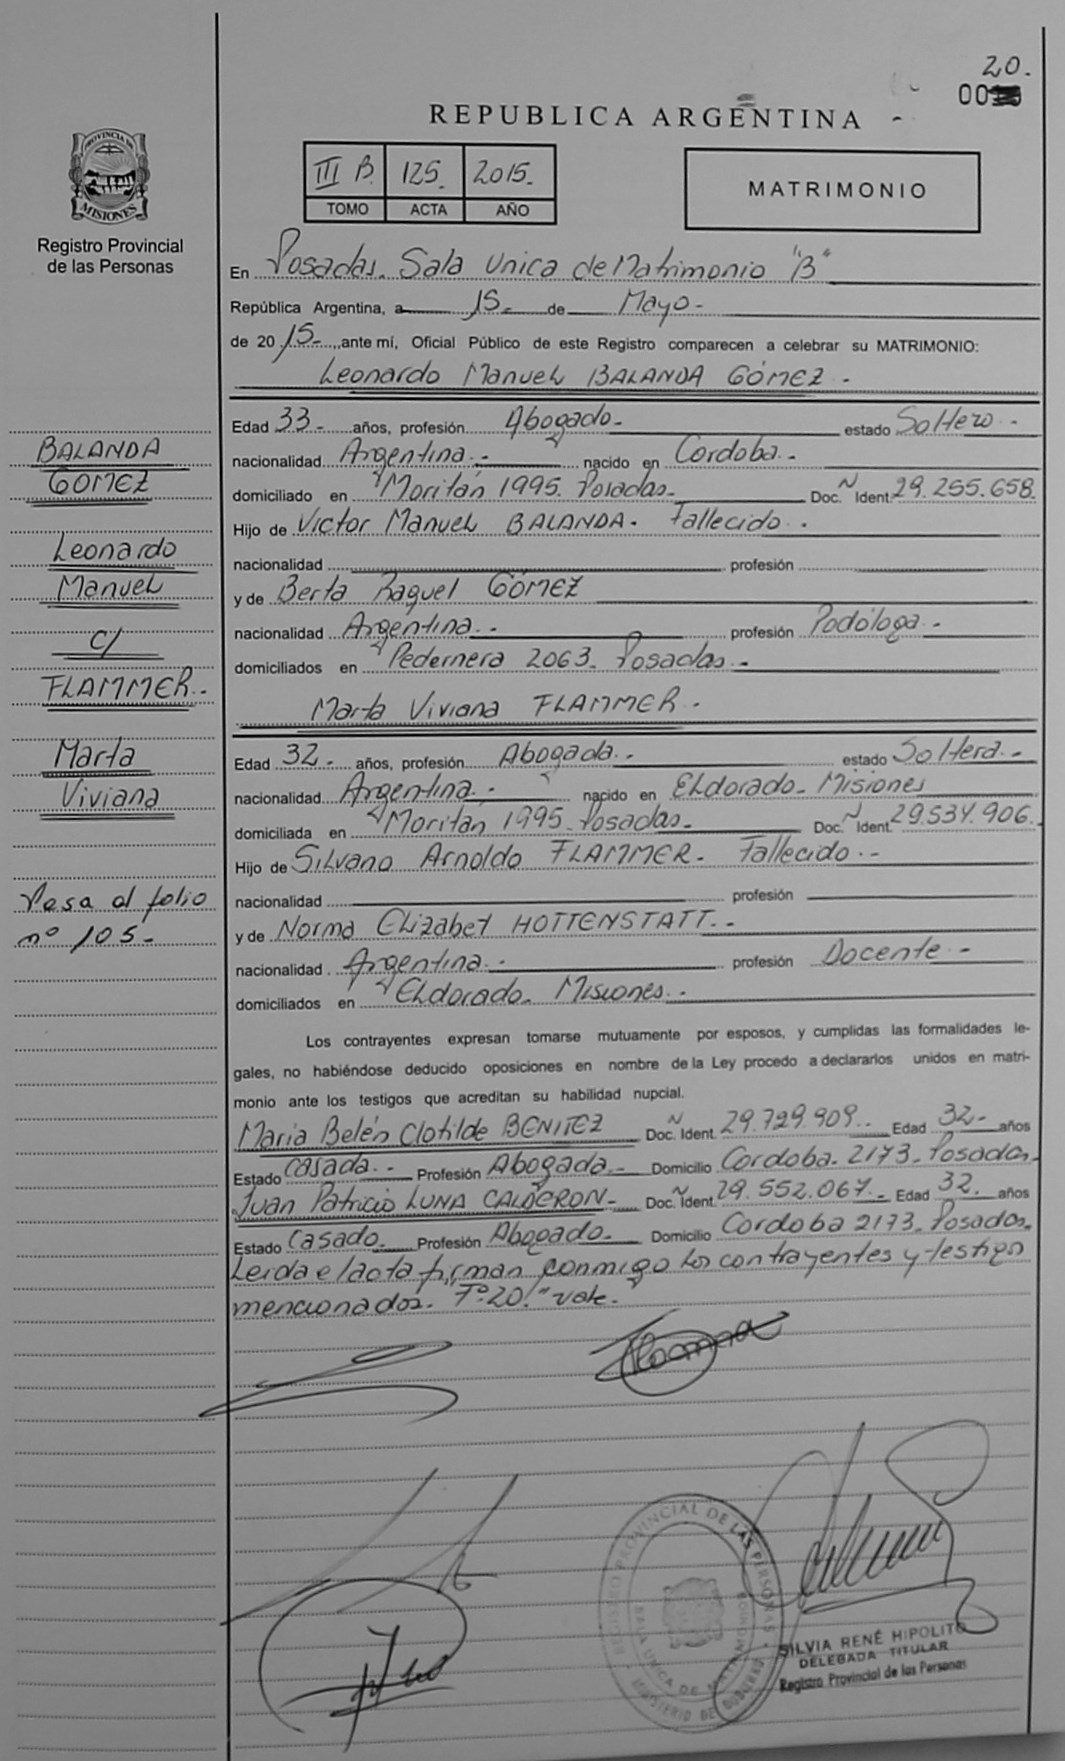 20.
00
REPUBLICA ARGENTINA
PROVINCIA DE
MISIONES
Registro Provincial
de las Personas
III B. 125. 2015.
TOMO ACTA AÑO
MATRIMONIO
En Posadas. Sala Unica de Matrimonio "B"
República Argentina, a 15- de Mayo-
de 2015- ,ante mí, Oficial Público de este Registro comparecen a celebrar su MATRIMONIO:
Leonardo Manuel BALANDA GÓMEZ.-
Edad 33- años, profesión Abogado- estado Soltero.-
nacionalidad Argentina.- nacido en Cordoba.-
domiciliado en Moritán 1995. Posadas.- Doc. N Ident. 29.255.658.
Hijo de Victor Manuel BALANDA. Fallecido.-
nacionalidad profesión
y de Berta Raquel GÓMEZ
nacionalidad Argentina.- profesión Podóloga.-
domiciliados en Pedernera 2063. Posadas.-
Marta Viviana FLAMMER.-
Edad 32- años, profesión Abogada.- estado Soltera.-
nacionalidad Argentina.- nacido en Eldorado- Misiones
domiciliada en Moritán 1995- Posadas.- Doc. N Ident. 29.534.906.
Hijo de Silvano Arnoldo FLAMMER. Fallecido.-
nacionalidad profesión
y de Norma Elizabet HOTTENSTATT.-
nacionalidad Argentina.- profesión Docente.-
domiciliados en Eldorado- Misiones.-
Los contrayentes expresan tomarse mutuamente por esposos, y cumplidas las formalidades le-
gales, no habiéndose deducido oposiciones en nombre de la Ley procedo a declararlos unidos en matri-
monio ante los testigos que acreditan su habilidad nupcial.
Maria Belén Clotilde BENITEZ Doc. N Ident. 29.729.909.- Edad 32- años
Estado Casada.- Profesión Abogada.- Domicilio Cordoba. 2173. Posadas.
Juan Patricio LUNA CALDERON- Doc. N Ident. 29.552.067.- Edad 32. años
Estado Casado. Profesión Abogado. Domicilio Cordoba 2173. Posadas.
Leida el acta firman conmigo los contrayentes y testigos
mencionados. "Fº.20." vale.-
BALANDA
GOMEZ
Leonardo
Manuel
c/
FLAMMER.-
Marta
Viviana
Pasa al folio
nº 105-
REGISTRO PROVINCIAL DE LAS PERSONAS
SALA UNICA DE MATRIMONIO
MINISTERIO DE GOBIERNO
SILVIA RENÉ HIPOLITO
DELEGADA TITULAR
Registro Provincial de las Personas